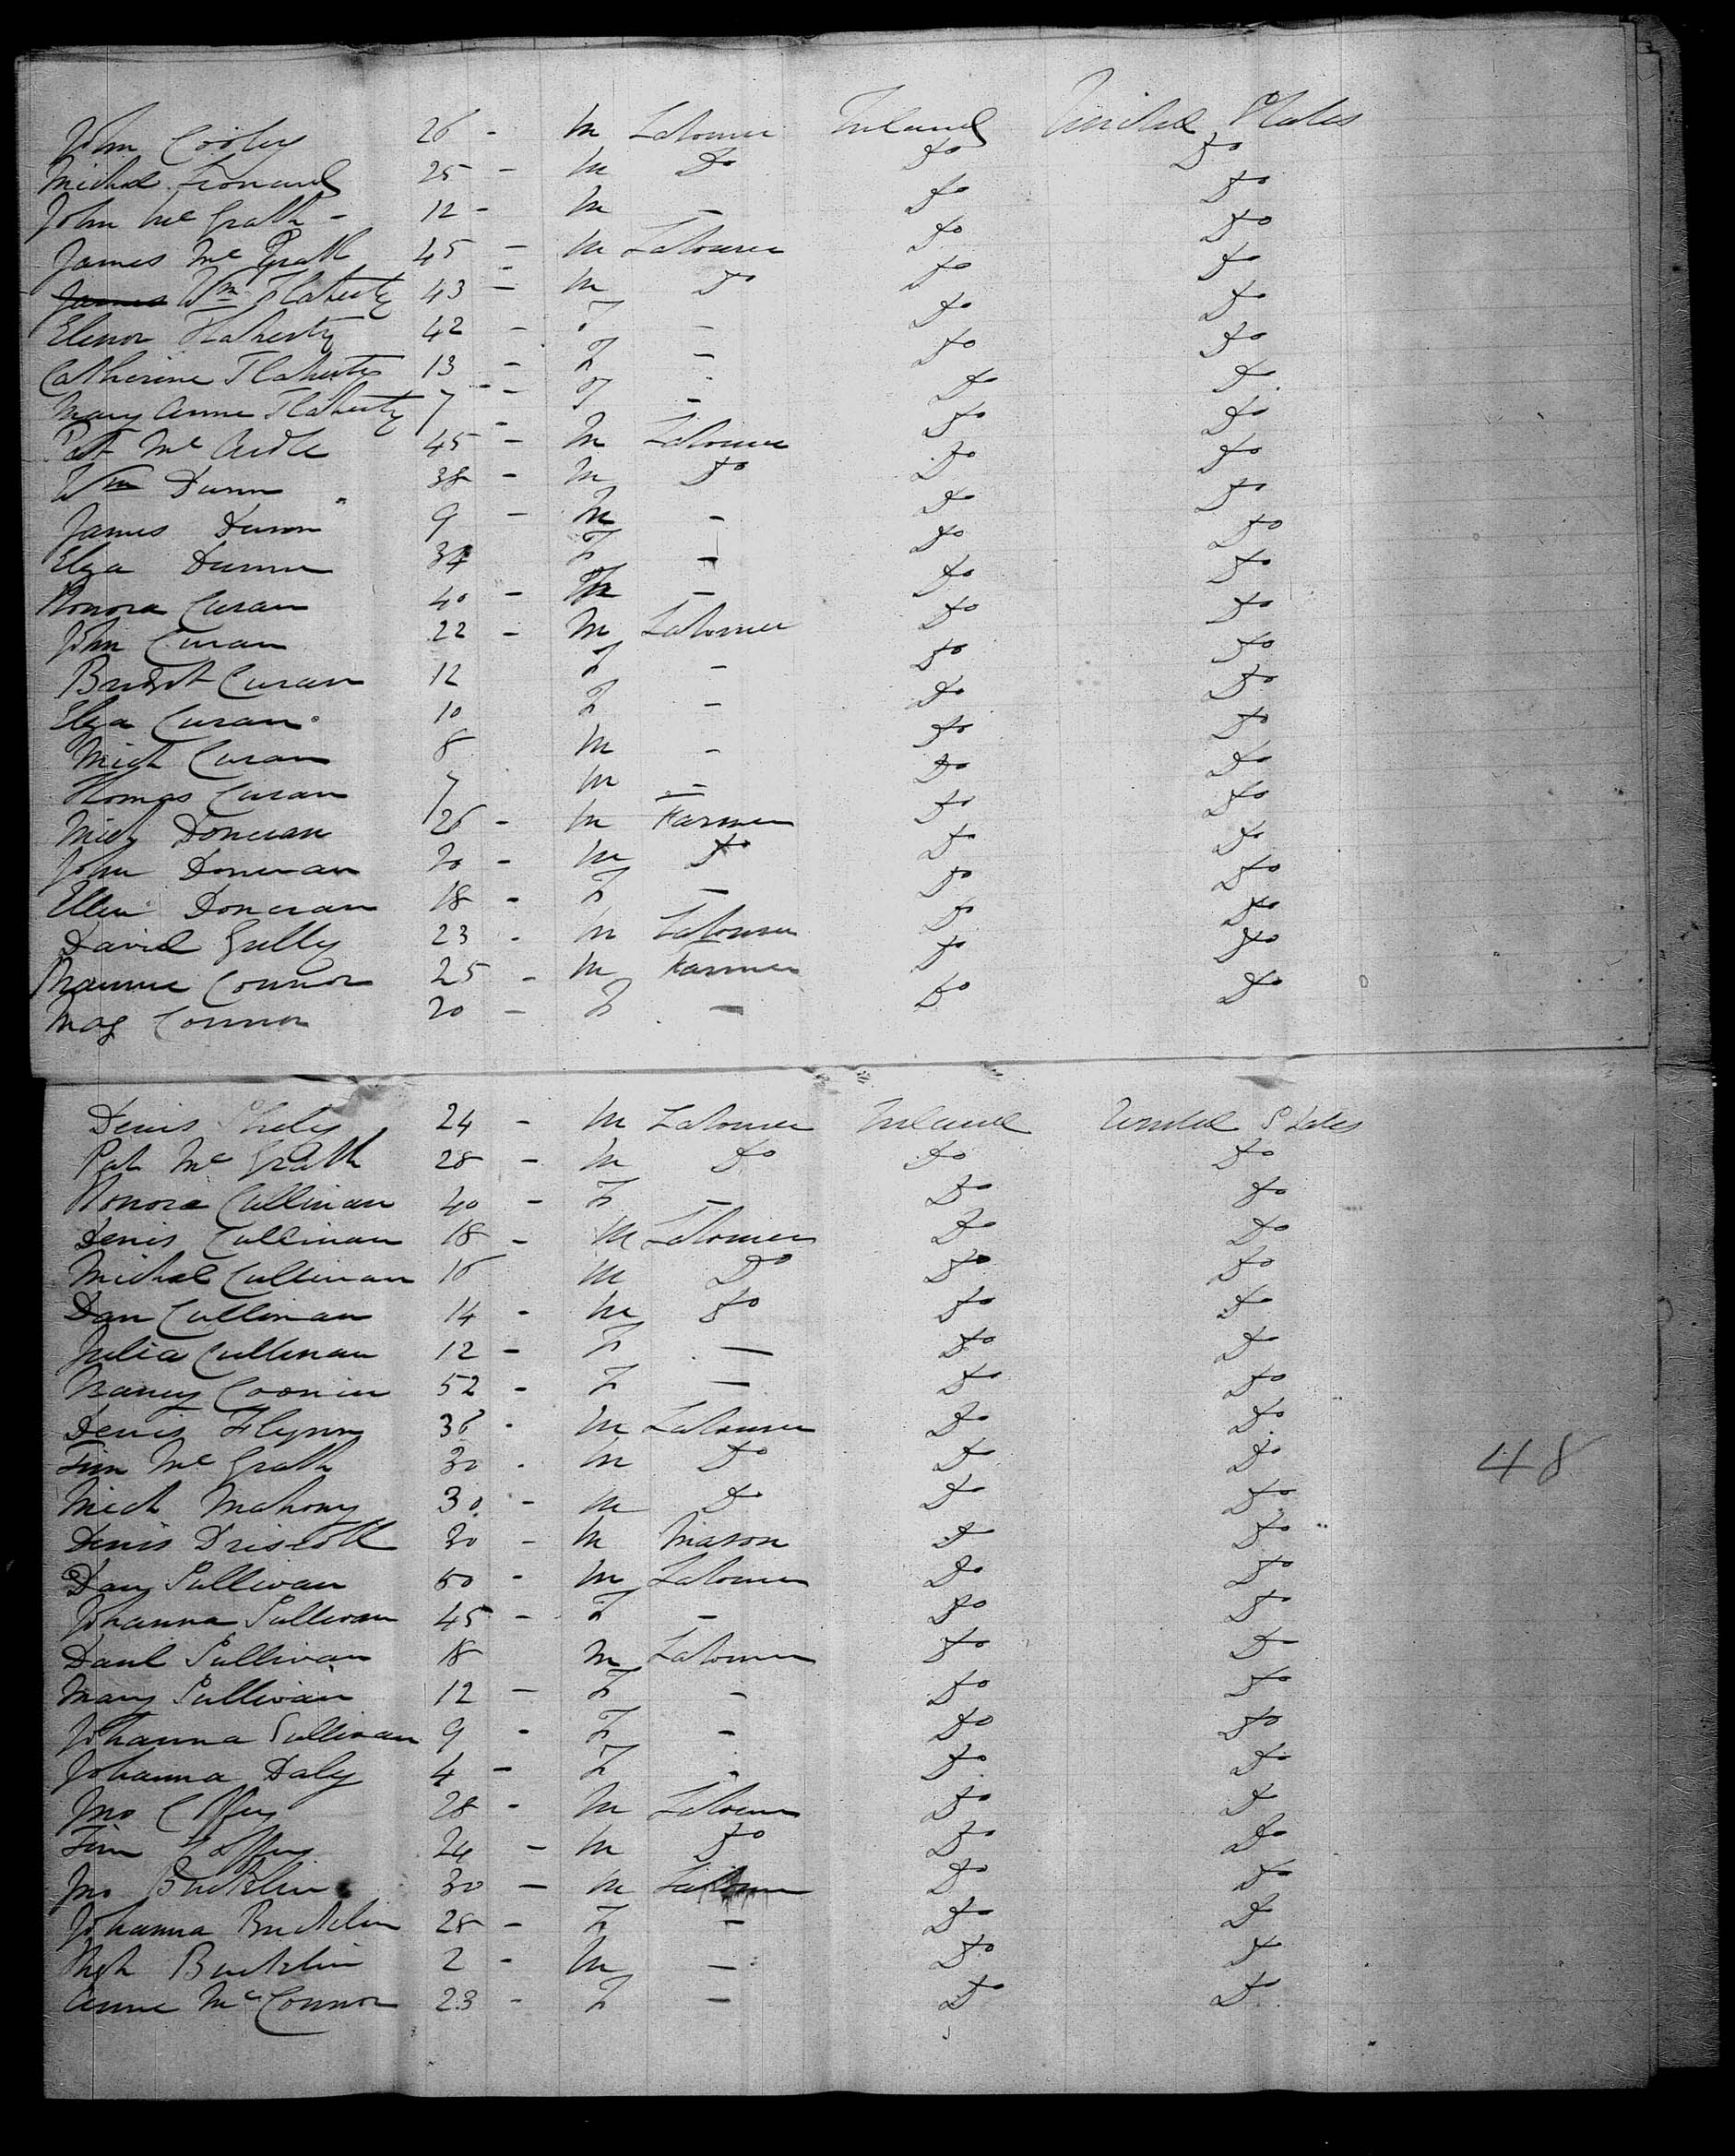 John Cooley 26 - M Labourer Ireland United States
Michal Leonard 25 - M Do Do Do
John McGrath - 12 - M - Do Do
James McGrath 45 - M Labourer Do Do
James Wm Flaherty 43 - M Do Do Do
Elenor Flaherty 42 - F - Do Do
Catherine Flaherty 13 - F - Do Do
Mary Anne Flaherty 7 - F - Do Do
Pat McArdle 45 - M Labourer Do Do
Wm Dunn 38 - M Do Do Do
James Dunn 9 - M - Do Do
Elza Dunn 34 F - Do Do
Honora Curan 40 - - Do Do
John Curan 22 - M Labourer Do Do
Bridgt Curan 12 F - Do Do
Elza Curan 10 F - Do Do
Mich Curan 8 M - Do Do
Thomas Curan 7 M - Do Do
Mich Donevan 26 - M Farmer Do Do
John Donevan 20 - M Do Do Do
Ellen Donevan 18 - F - Do Do
David Gully 23 - M Labourer Do Do
Connor 25 - M Farmer Do Do
Mag Connor 20 - F - Do Do
Denis 24 - M Labourer Ireland United States
Pat McGrath 28 - M Do Do Do
Honora Cullinan 40 - F - Do Do
Denis Cullinan 18 - M Labourer Do Do
Michal Cullinan 16 M Do Do Do
Dan Cullinan 14 - M Do Do Do
Julia Cullinan 12 - F - Do Do
Nancy 52 - F - Do Do
Denis Flynn 36 - M Labourer Do Do
Tim McGrath 30 - M Do Do Do
Mich Mahony 30 - M Do Do Do
48
Denis Driscoll 30 - M Mason Do Do
Dan Sullivan 50 - M Labourer Do Do
Johanna Sullivan 45 - F - Do Do
Danl Sullivan 18 M Labourer Do Do
Mary Sullivan 12 - F - Do Do
Johanna Sullivan 9 - F - Do Do
Johanna Daly 4 - F - Do Do
Jno Coffey 28 - M Labourer Do Do
Tim Coffey 24 - M Do Do Do
Jno Bucklin 30 - M Labourer Do Do
Johanna Bucklin 28 - F - Do Do
Bucklin 2 - M - Do Do
Anne McConnor 23 - F - Do Do